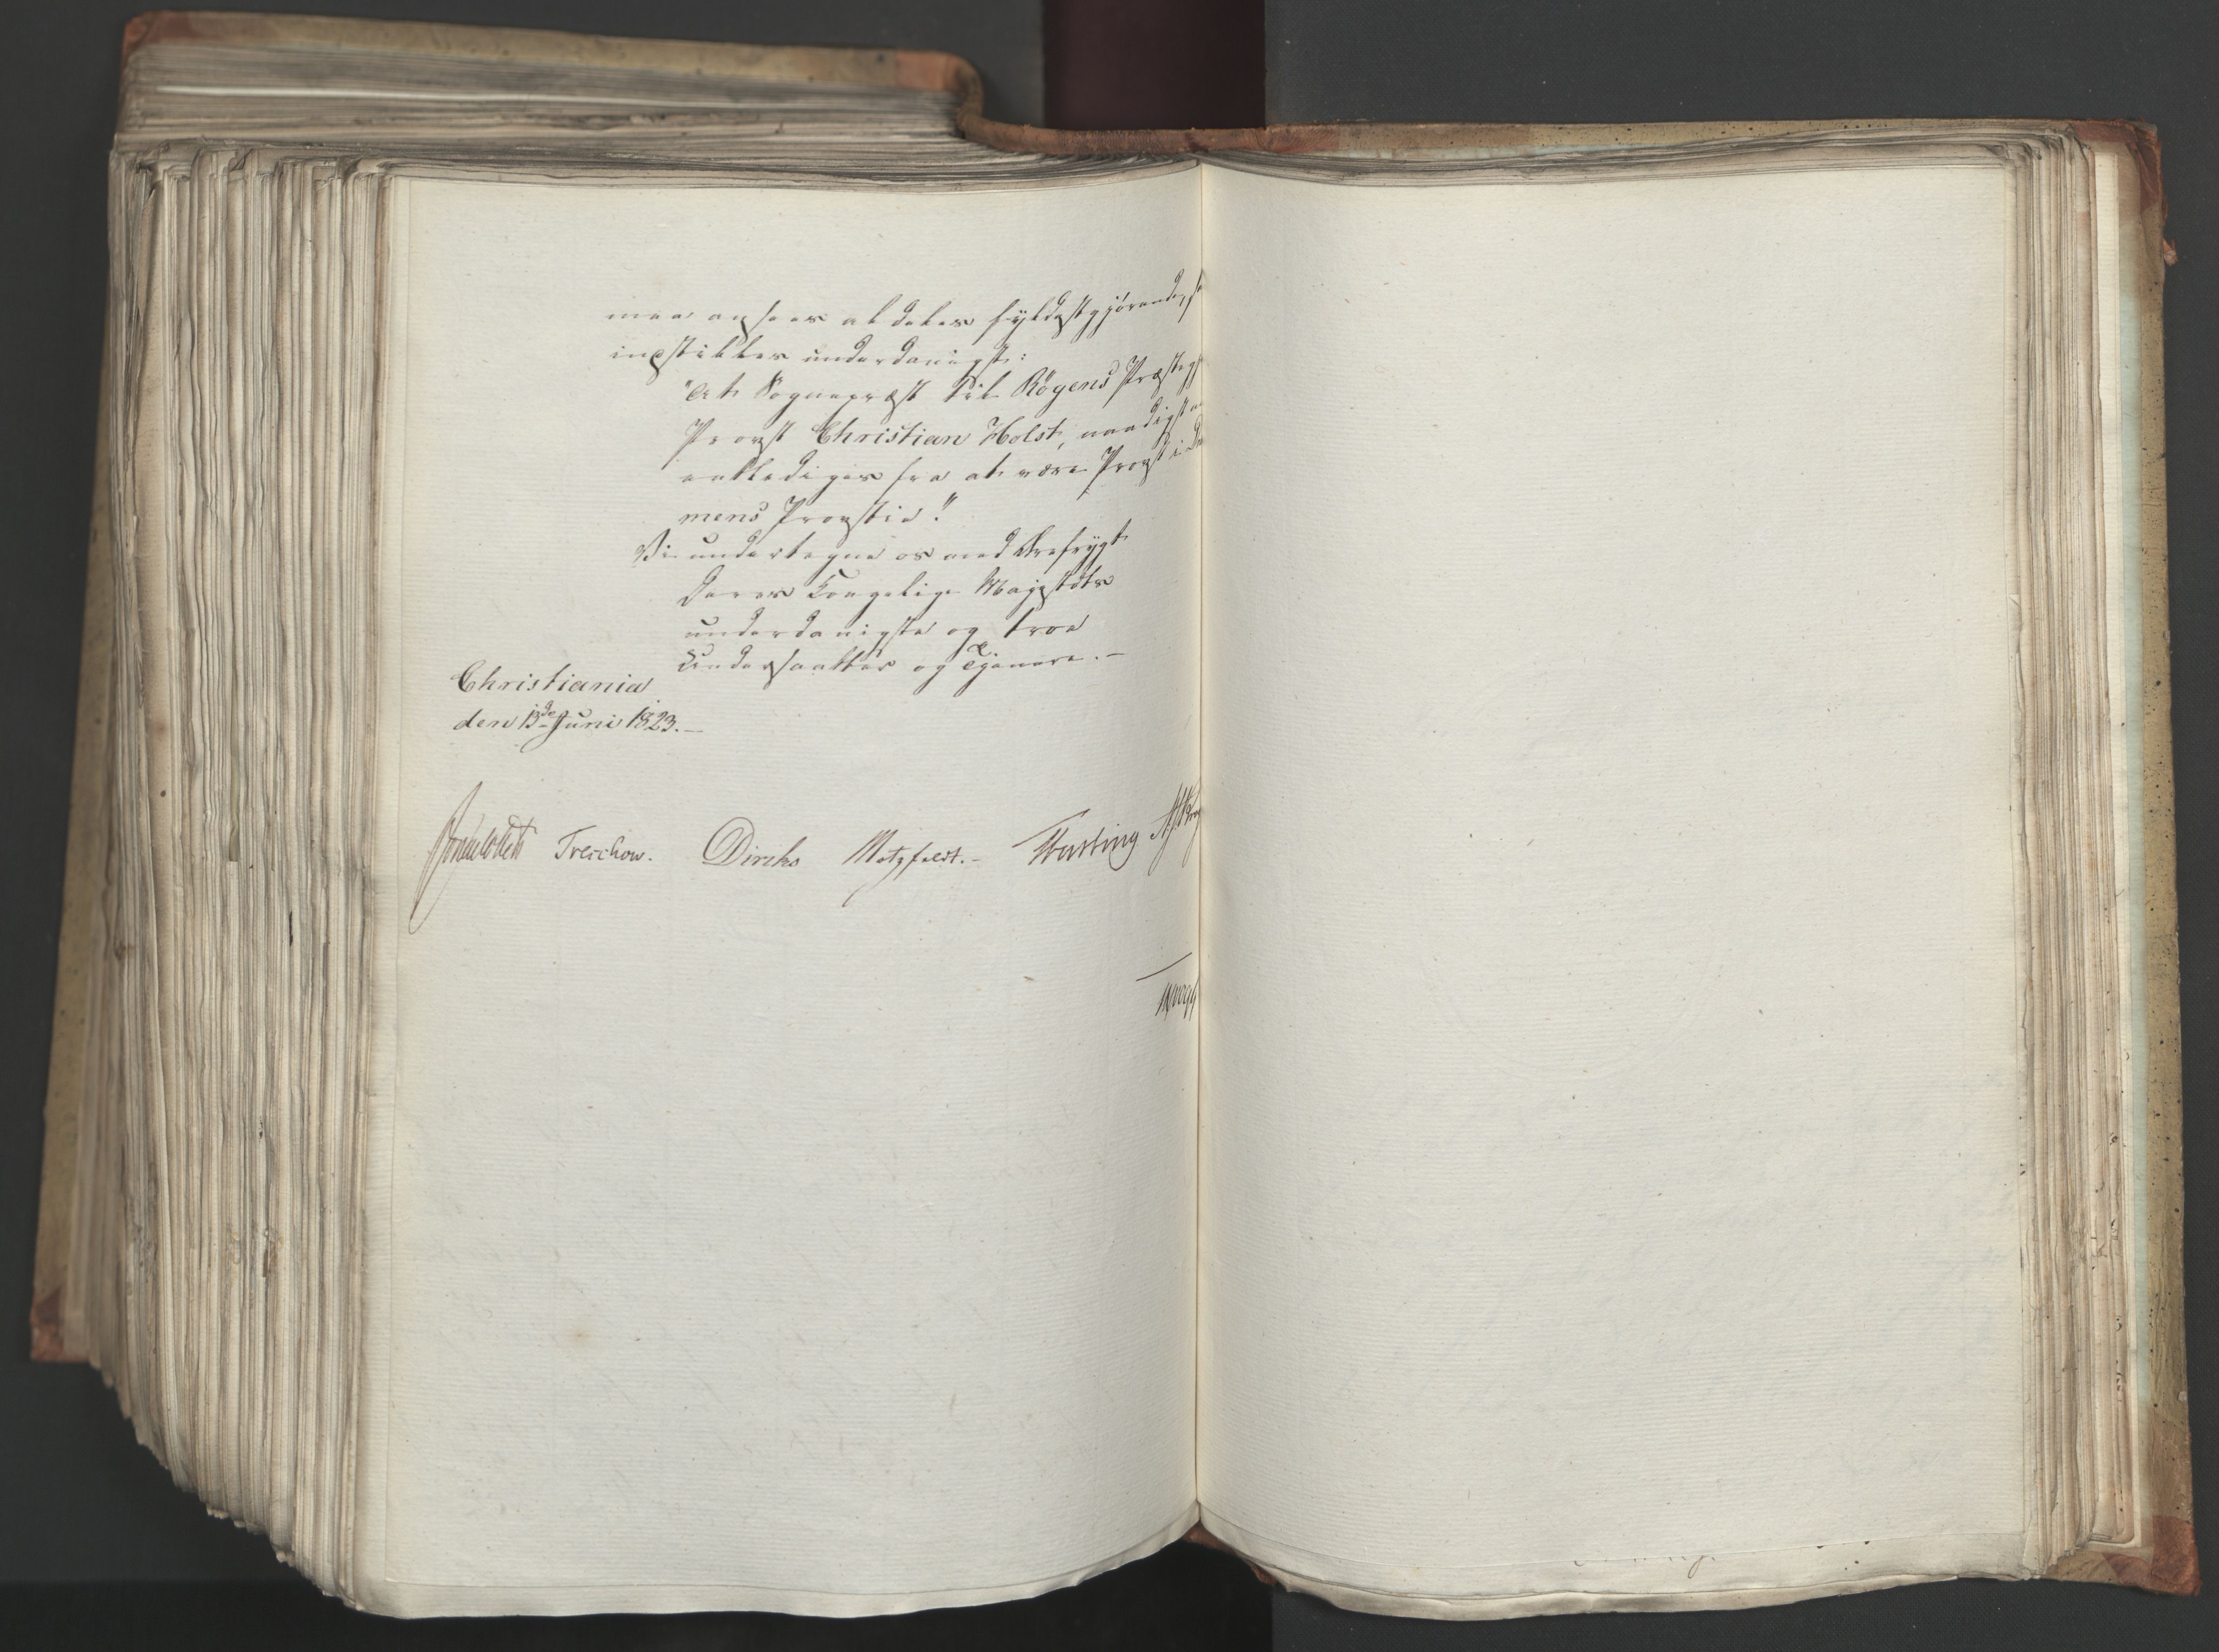 maa ansees at dales fyldestgjørende, 
indstilles underdanigst:
"At Sognepræst til Røgens Præstegj
Provst Christian Holst, naadigst
entlediges fra at være Provst i
mens Provstie."
Vi undertegne os med Ærefrygt
Deres Kongelige Majestæts
underdanigste og troe
Undersaatter og Tjenere. —
Christiania
den 13de Juni 1823. —
Treschow. Diriks Motzfeldt. — Fasting